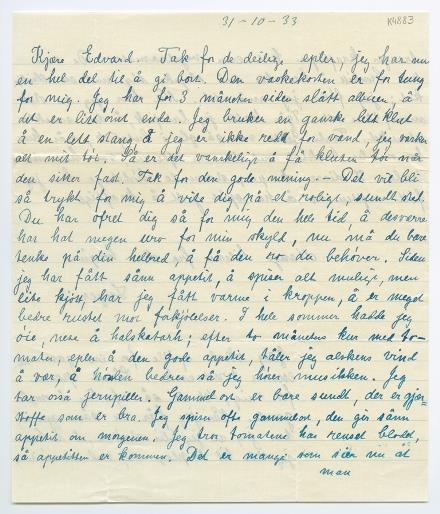 31-10-33
K4883
Kjære Edvard. Tak for de deilige epler, jeg har nu
en hel del til å gi bort. Den vaskekosten er for tung
for mig. Jeg har for 3 måneter siden slått albuen, å
det er litt ømt enda. Jeg bruker en ganske lett klut
å en lett stang å jeg er ikke redd for vand, jeg vasker
alt mit tøi. Så er det vanskelige å få kluten tør når
den sitter fast. Tak for den gode mening. – Det vil bli
så trykt for mig å vite dig på et roligt, sundt sted.
Du har ofret dig så for mig den hele tid å desverre
har hat megen uro for min skyld, nu må du bare
tenke på din helbred å få den ro du behøver. Siden
jeg har fått sånn appetit, å spiser alt mulige, men
lite kjøtt, har jeg fått varme i kroppen, å er meget
bedre rustet mot forkjølelser. I hele sommer hadde jeg
øie, nese å halskatarh; efter to måneters kur med to-
mater, epler å den gode appetit, tåler jeg alskens vind
å vær, å hørslen bedres så jeg hører musikken. Jeg
tar også jernpiller. Gammelost er bare sundt, der er gjær-
stoffe som er bra. Jeg spiser ofte gammelost, den gir sånn
appetit om morgenen. Jeg tror tomatene har renset blodet,
så appetitten er kommen. Det er mange som sier nu at
man